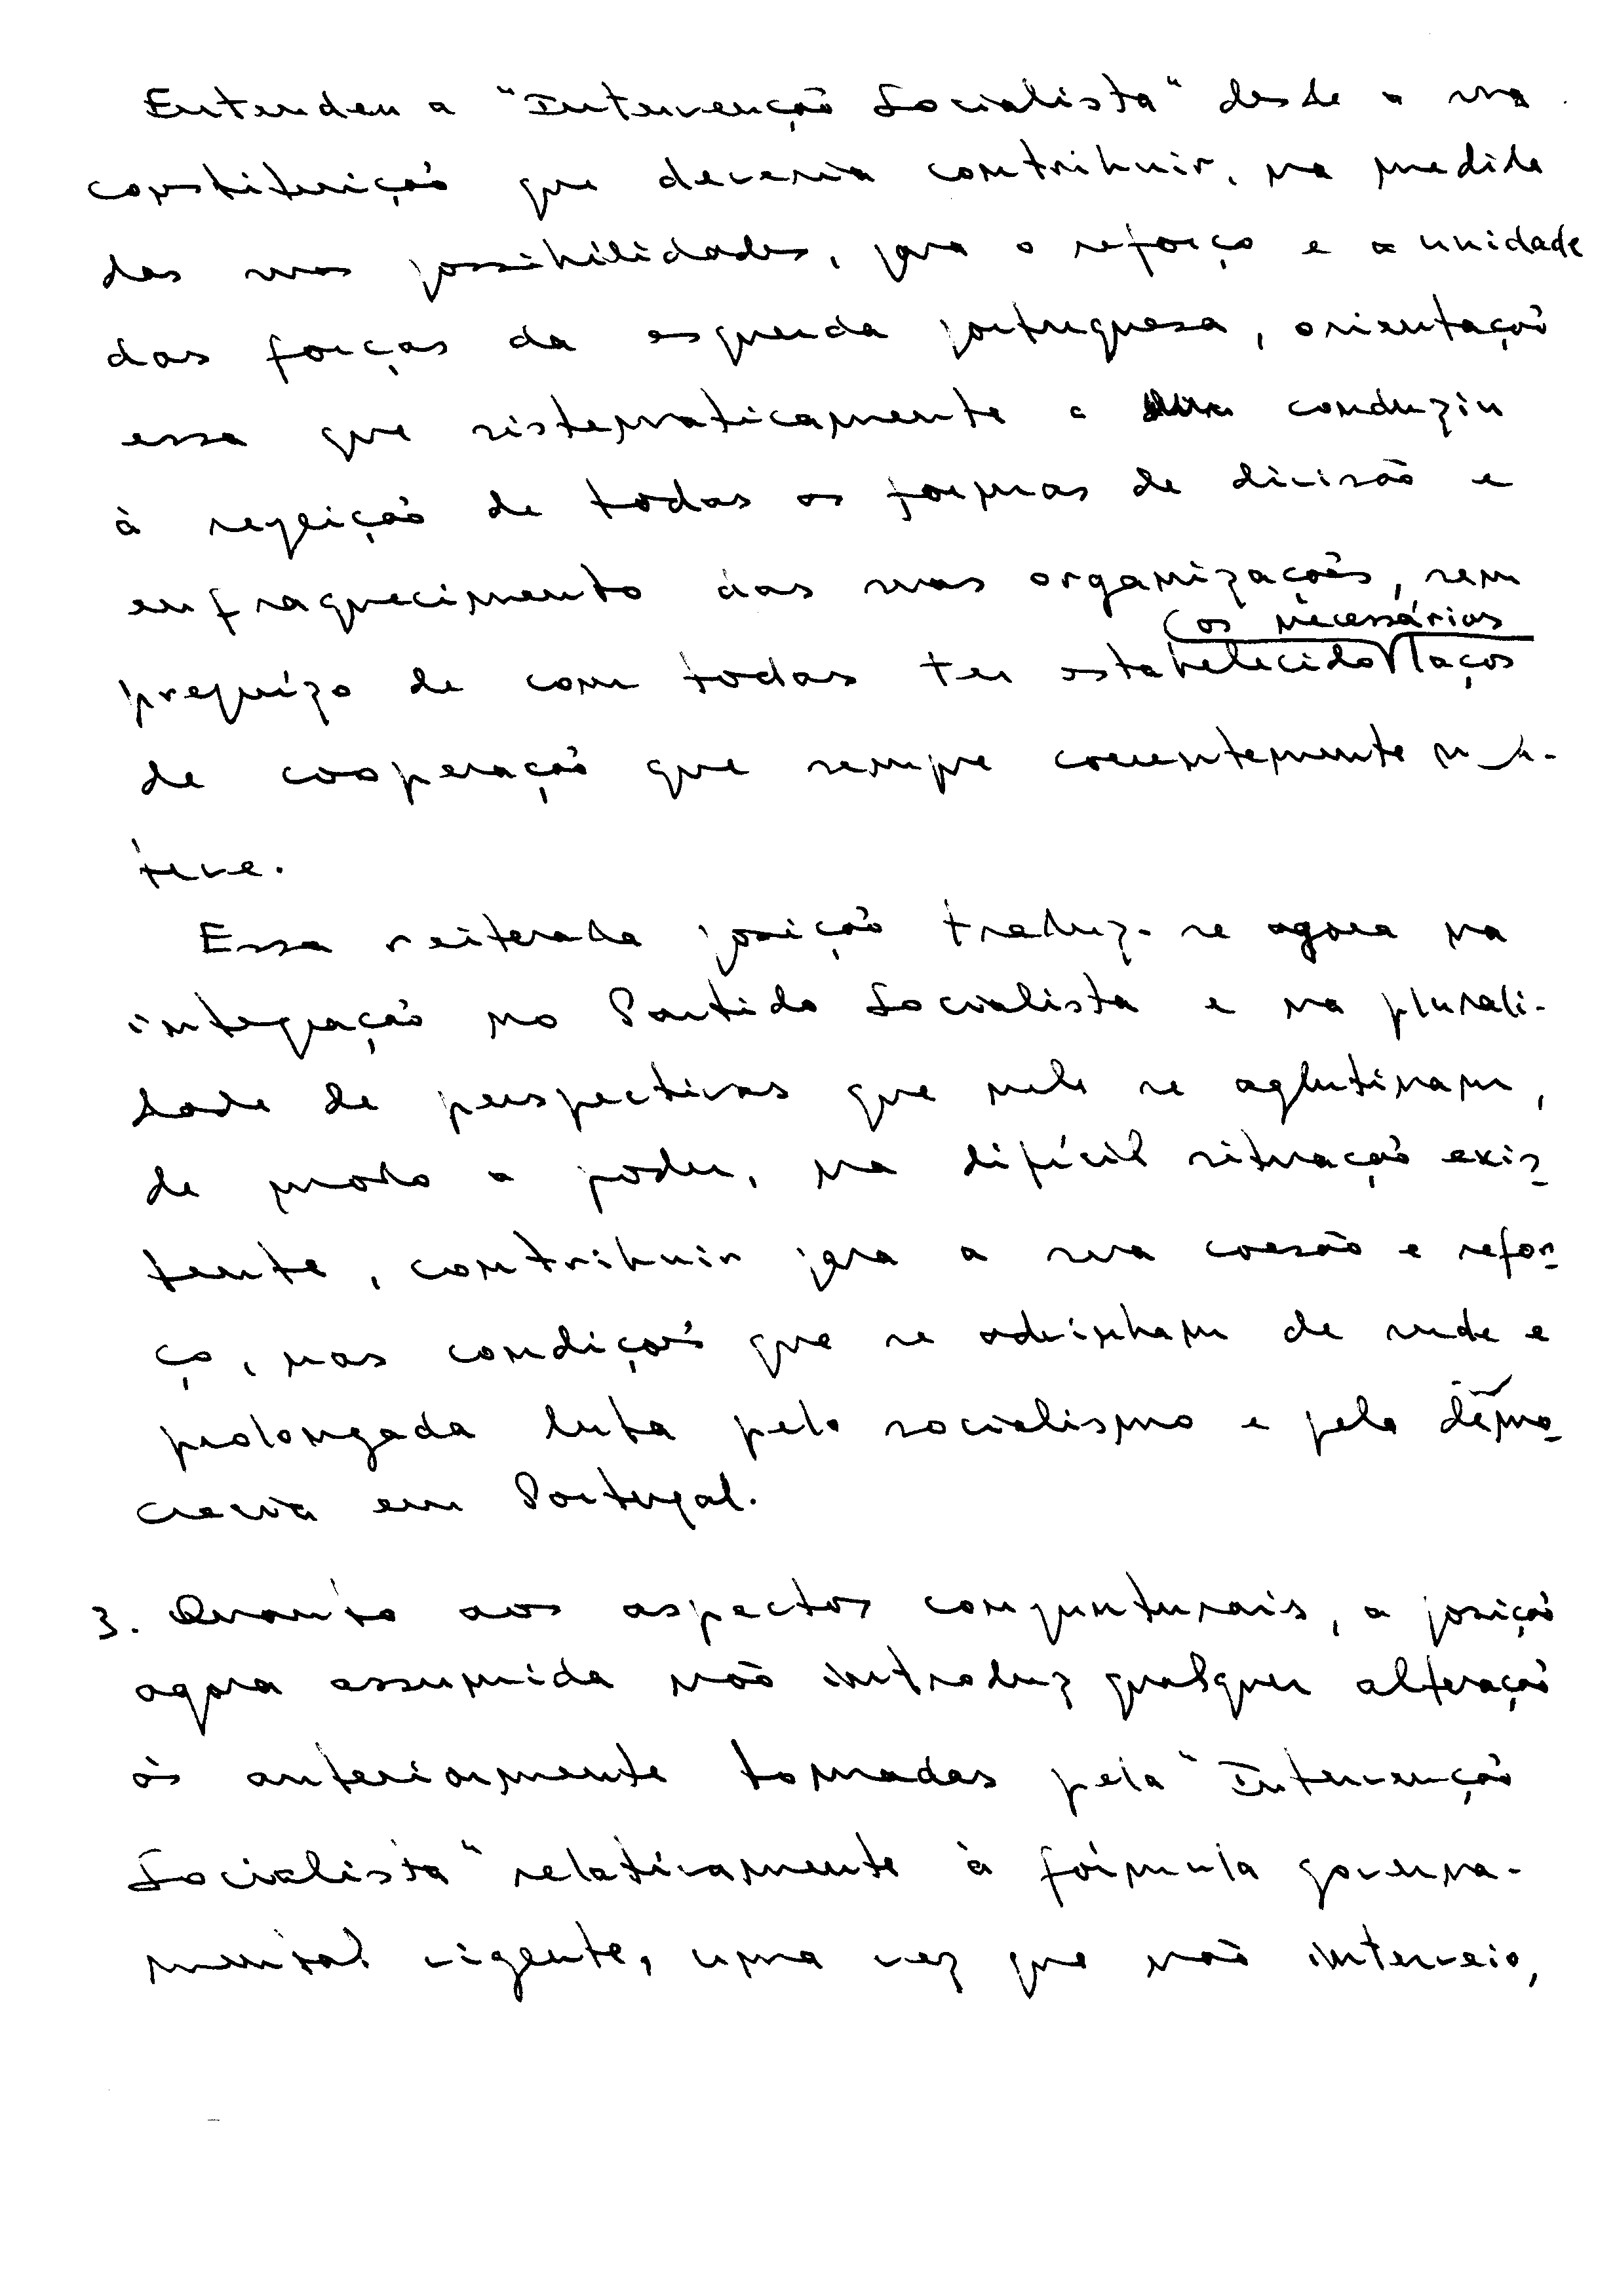 Entendeu a "Intervenção Socialista" desde a sua
constituição que deveria contribuir, na medida
das suas possibilidades, para o reforço e a unidade
das forças da esquerda portuguesa, orientação
essa que sistematicamente a conduziu
à rejeição de todas as formas de divisão e
enfraquecimento das suas organizações, sem
os necessários
prejuízo de com todas ter estabelecido laços
de cooperação que sempre coerentemente man-
teve.
Essa reiterada posição traduz-se agora na
integração no Partido Socialista e na plurali-
dade de perspectivas que nele se aglutinam,
de modo a poder, na difícil situação exis-
tente, contribuir para a sua coesão e refor-
ço, nas condições que se adivinham de rude e
prolongada luta pelo socialismo e pela demo-
cracia em Portugal.
3. Quanto aos aspectos conjunturais, a posição
agora assumida não introduz qualquer alteração
às anteriormente tomadas pela "Intervenção
Socialista" relativamente à fórmula governa-
mental vigente, uma vez que não interveio,